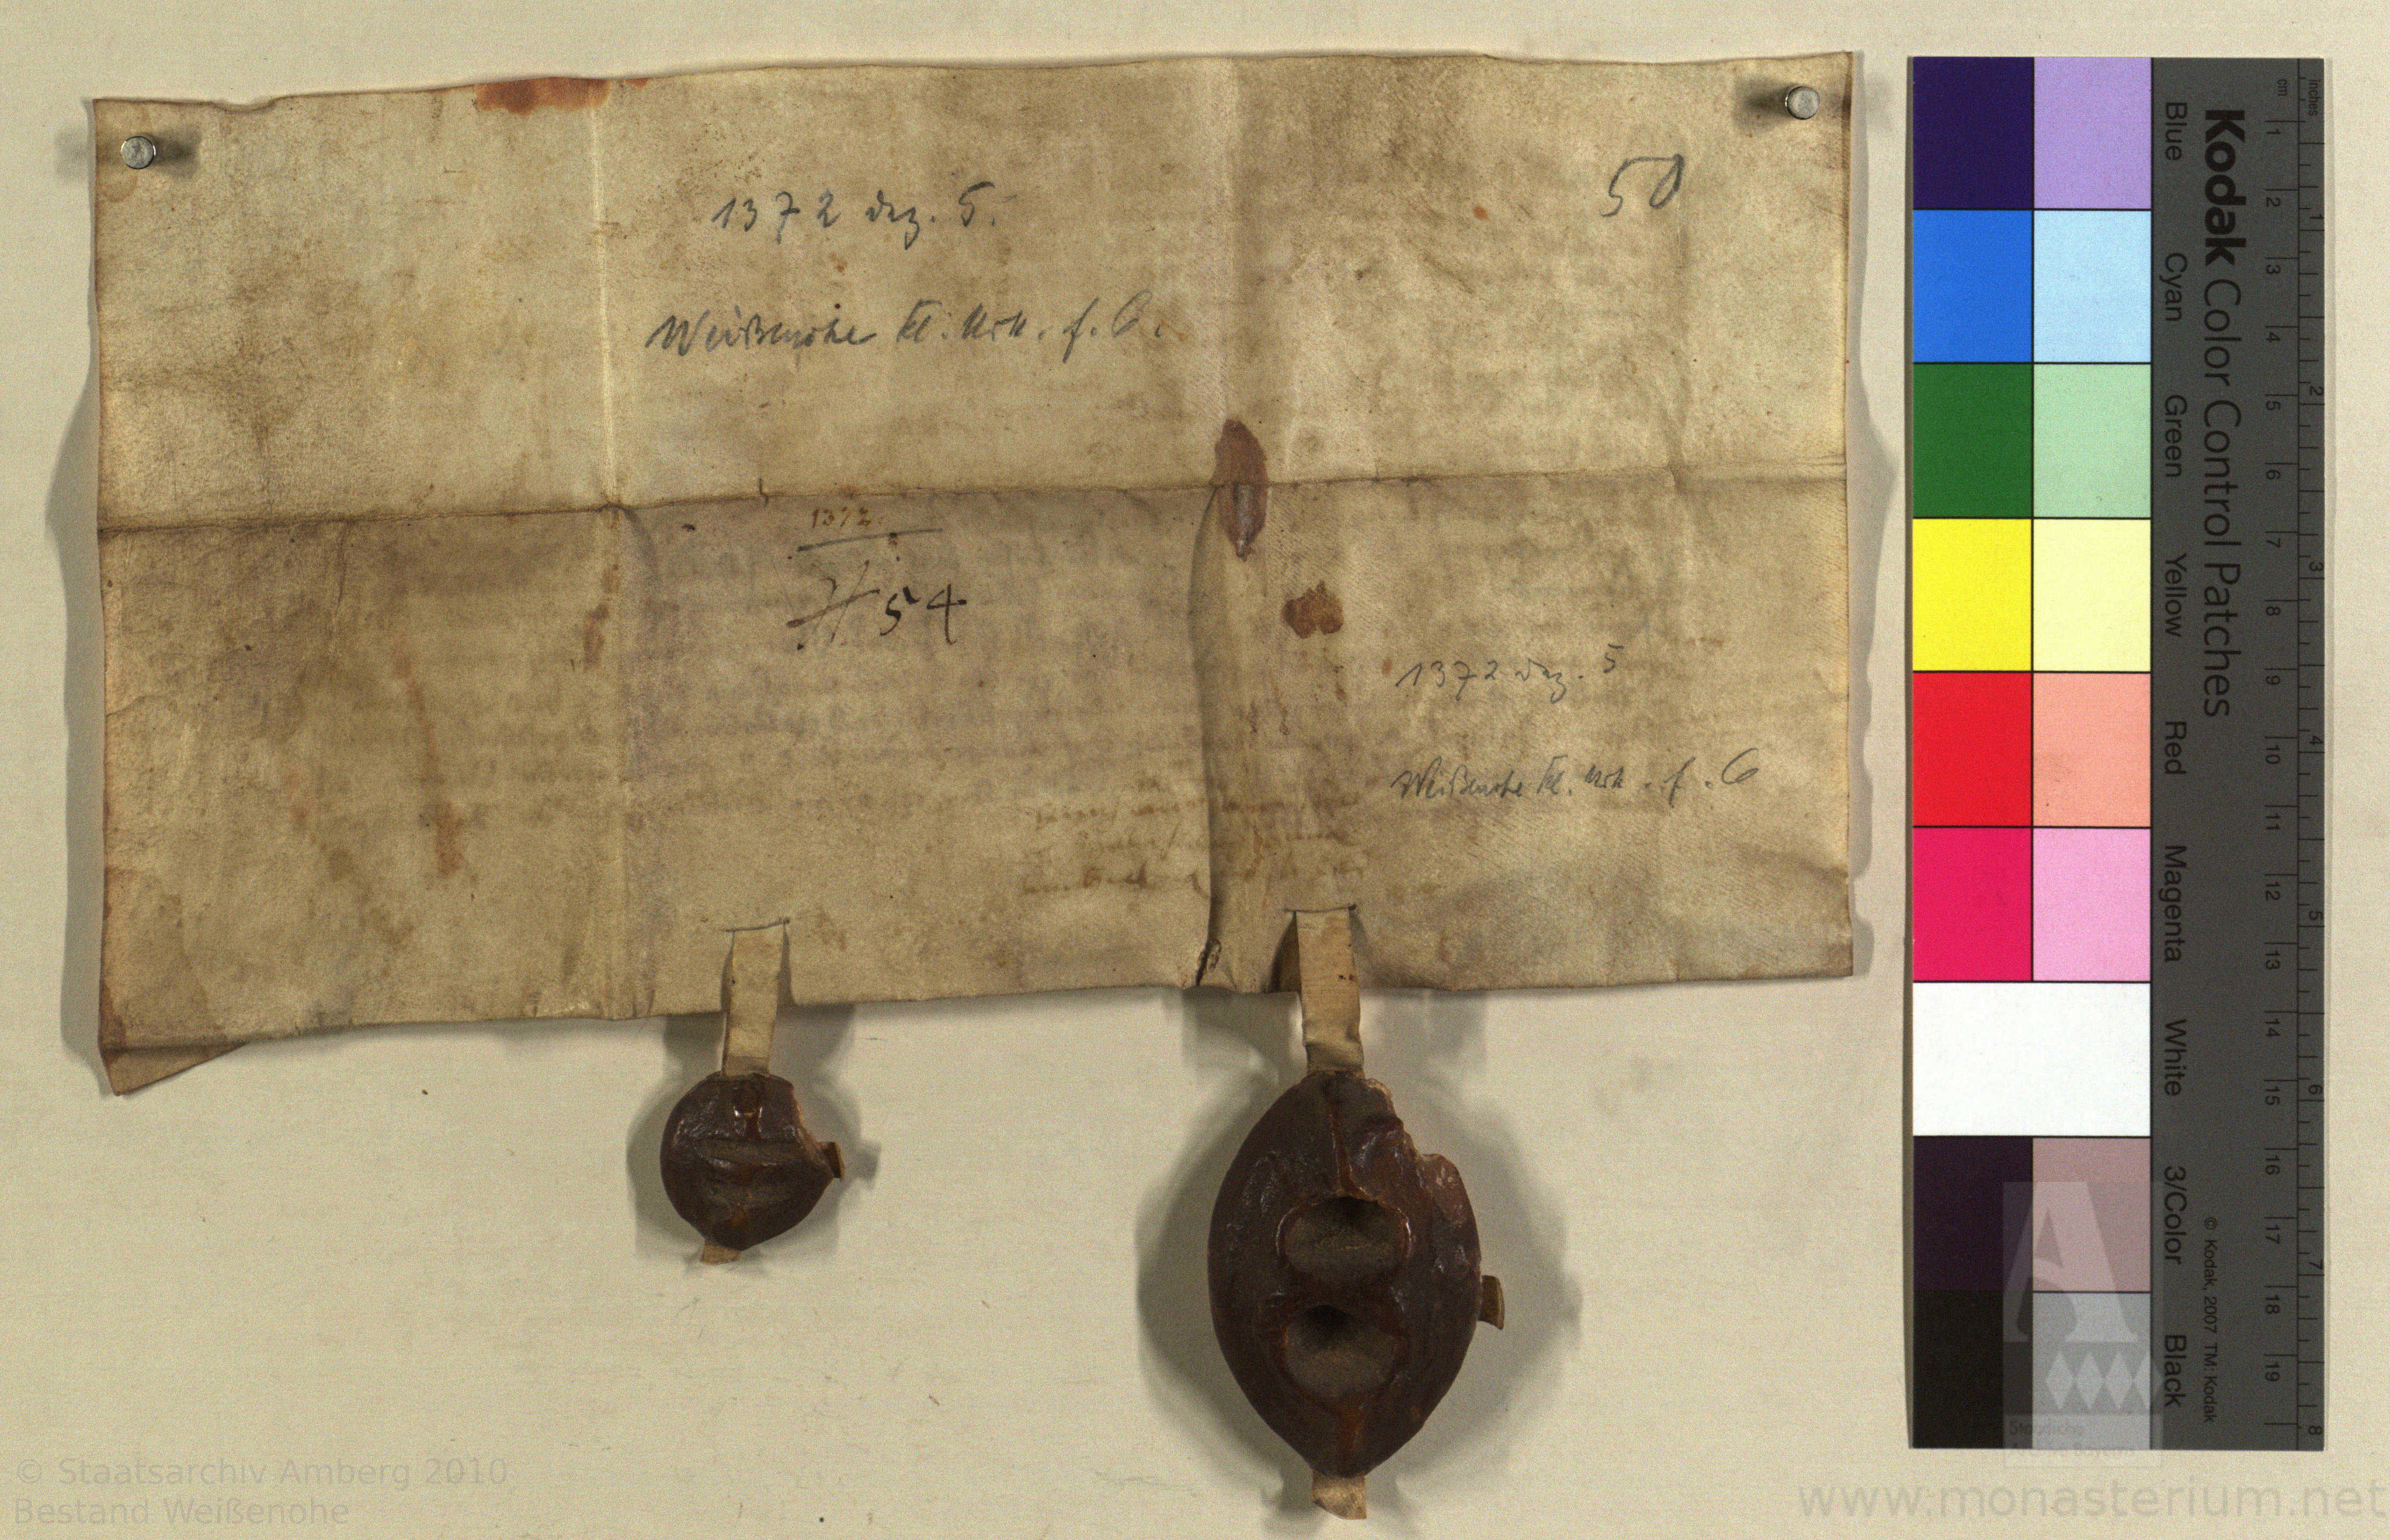 1372 Dez. 5.
50
Weißenohe Kl. Urk. f. 6.
1372.
# 54
1372 Dez. 5
Weißenohe Kl. Urk. f. 6
Kodak Color Control Patches
Blue Cyan Green Yellow Red Magenta White 3/Color Black
© Kodak, 2007 TM: Kodak
cm 1 2 3 4 5 6 7 8 9 10 11 12 13 14 15 16 17 18 19
inches 1 2 3 4 5 6 7 8
Staatliche
© Staatsarchiv Amberg 2010
Bestand Weißenohe
www.monasterium.net